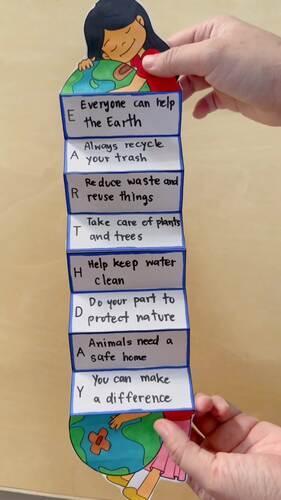 E Everyone can help
the Earth
A Always recycle
your trash
R Reduce waste and
reuse things
T Take care of plants
and trees
H Help keep water
clean
D Do your part to
protect nature
A Animals need a
safe home
Y You can make
a difference